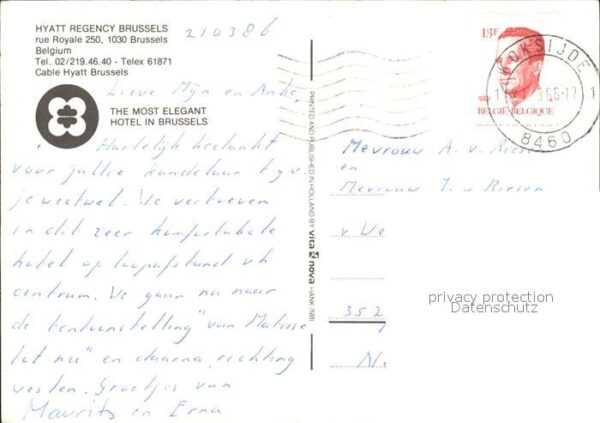 HYATT REGENCY BRUSSELS
rue Royale 250, 1030 Brussels
Belgium
Tel. 02/219.46.40 - Telex 61871
Cable Hyatt Brussels
THE MOST ELEGANT
HOTEL IN BRUSSELS
210386
Lieve Mijn en
Hartelijk bedankt
voor jullie
je weetwel. We vertoeven
in dit zeer komfortabele
hotel op loopafstand vh
centrum. We gaan nu naar
de tentoonstelling "van Matisse
tot nu" en daarna richting
westen. Groetjes van
Maurits en Erna
PRINTED AND PUBLISHED IN HOLLAND BY vita nova HANK (NB)
13F
BELGIË-BELGIQUE
KOKSIJDE
8460
Mevrouw A. v. Riesen
en
Mevrouw T. v Riesen
v We
352
privacy protection
Datenschutz